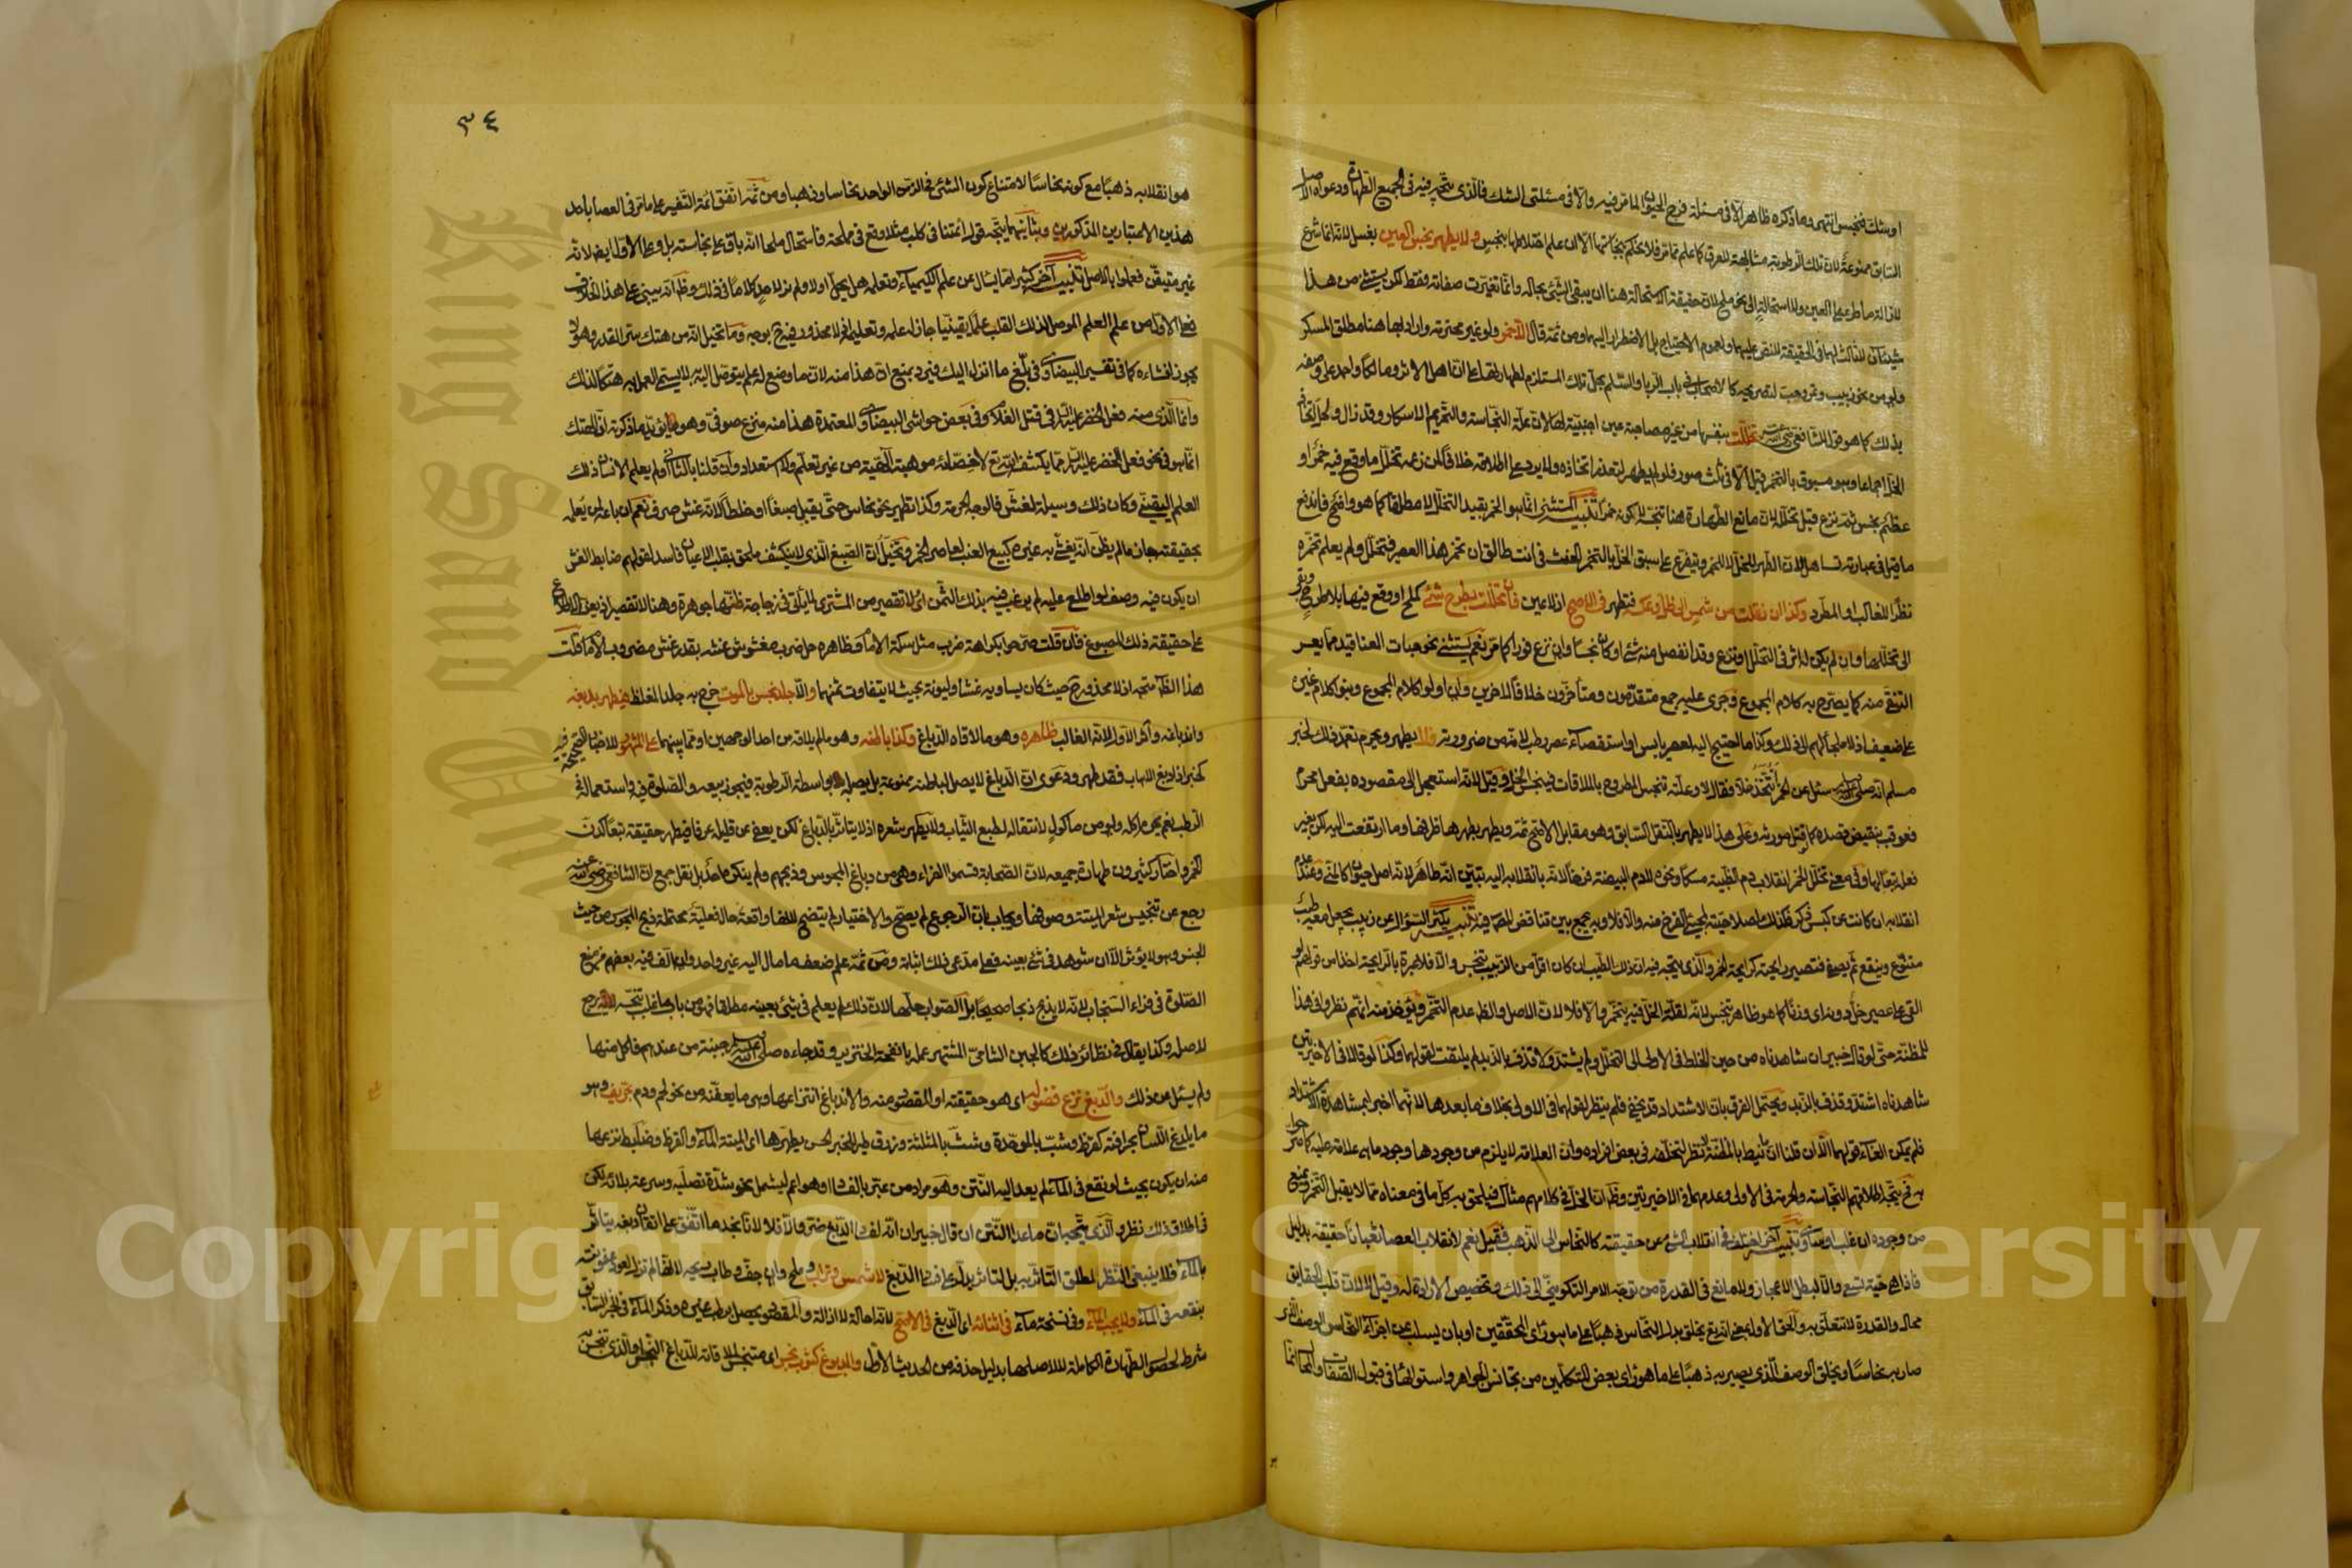 او شك فنجس انتهى وما ذكره ظاهر الا في مسئلة فرخ الحيوان لما مر فيه والا في مسئلتي الشك فالذي يتجه فيه في الجميع الطهارة ودعواه الاصل
السابق ممنوعة لان تلك الرطوبة مشابهة للعرق كما علم مما مر فلا نحكم بنجاستها الا ان علم اختلاطها بنجس ولا يطهر نجس العين بغسل لانه انما شرع
لازالة ما طرء على العين ولا استحالة الى نحو ملح لان حقيقة الاستحالة هنا ان يبقى الشئ بحاله وانما تغيرت صفاته فقط لكن يستثنى من هذا
شيئان لا ثالث لهما في الحقيقة للنص عليهما ولعموم الاحتياج بل الاضطرار اليهما ومن ثمة قال الا خمر ولو غير محترمة وارادبها هنا مطلق المسكر
ولو من نحو زبيب وتمر وحب لتصريحه كالاصحاب في باب الربا والسلم بحل تلك المستلزم لطهارتها على ان اهل الاثر ومالكا واحمد على وصفه
بذلك كما هو قول الشافعي رضي الله عنه تخللت بنفسها من غير مصاحبة عين اجنبية لها لان علة النجاسة والتحريم الاسكار وقد زال ولحل اتخاذ
الخل اجماعا وهو مسبوق بالتخمر قيل الا في ثلث صور فلو لم يطهر لتعذر اتخاذه ولا يرد على اطلاقه خلافا لمن زعمه تخلل ما وقع فيه خمرا و
عظم نجس ثمة نزع قبل تخلله لان مانع الطهارة هنا تنجسه لا كونه خمرا تنبيه المستثنى انما هو الخمر بقيد التخلل لا مطلقا كما هو واضح فاندفع
ما قيل في عبارته تساهل لان الطهر للخل لا للخمر ويتفرع على سبق الخل بالتخمر الحنث في انت طالق ان تخمر هذا العصير فتخلل ولم يعلم تخمره
نظرا للغالب او المطرد وكذا ان نقلت من شمس الى ظل وعكسه فتطهر في الاصح اذ لا عين فان تخللت بطرح شئ كملح او وقع فيها بلا طرح وبقي
الى تخللها وان لم يكن له اثر في التخلل او نزع وقد انفصل منه شئ او كان نجسا وان نزع فورا كما مر نعم يستثنى نحو حبات العناقيد مما يعسر
التنقي منه كما يصرح به كلام المجموع وجرى عليه جمع متقدمون ومتأخرون خلافا لاخرين وان اولوا كلام المجموع وبنوا كلام غيره
على ضعيف اذ لا ملجأ لهم الى ذلك وكذا ما احتيج اليه لعصر يابس او استقصاء عصر رطب لانه من ضرورية فلا يطهر ويحرم تعمد ذلك لخبر
مسلم انه صلى الله عليه وسلم سئل عن الخمر أتتخذ خلا فقال لا وعلته تنجس المطروح بالملاقات فينجس الخل وقيل لانه استعجل الى مقصوده بفعل محرم
فعوقب بنقيض قصده كما لو قتل مورثه وعلى هذا لا يطهر بالنقل السابق وهو مقابل الاصح ثمة ويطهر بطهرها ظرفها وما ارتفعت اليه لكن بغير
فعله تبعا لها وفي معنى تخلل الخمر انقلاب دم الظبية مسكا ونحوه لا دم البيضة فرخا لانه بانقلابه اليه تبين انه طاهر لانه اصل حيوان كالمني وعند عدم
انقلابه ان كانت عن كبس ذكر فكذلك لصلاحيته لمجئ الفرخ منه والا فلا وبه يجمع بين تناقض المصنف فيه تنبيه يكثر السؤال عن زبيب يجعل معه طيب
متنوع وينقع ثم يصفى فتصير رايحته كرايحة الخمر والذي يتجه فيه ان ذلك الطيب ان كان اقل من الزبيب تنجس والا فلا عبرة بالرايحة اخذا من قولهم لو
القي على عصير خل دونه اي وزنا كما هو ظاهر تنجس لانه لقلة الخل فيه يتخمر والا فلا لان الاصل والظاهر عدم التخمر ويؤخذ منه انهم نظروا في هذا
للمظنة حتى لو قال خبيران شاهدناه من حين الخلط في الاولى الى التخلل ولم يشتد ولا قذف بالزبد لم يلتفت لقولهما وكذا لو قالا في الاخيرتين
شاهدناه اشتد وقذف بالزبد ويحتمل الفرق بان الاشتداد قد يخفى فلم ينظر لقولهما في الاولى بخلاف ما بعدها لانهما اخبرا بمشاهدة الاشتداد
فلم يمكن الغاء قولهما الا ان قلنا ان ما نيط بالمظنة لا نظر لتخلفه في بعض افراده وان العلاقة لا يلزم من وجودها وجود ما هي علاقة عليه كما صرحوا
به نعم يتجه اطلاقهم النجاسة والحرمة في الاولى وعدمهما في الاخيرتين وظاهر ان الخل في كلامهم مثال فيلحق به كل ما في معناه مما لا يقبل التخمر ويمنع
من وجوده ان غلب او ساوى تنبيه آخر اختلف في انقلاب الشئ عن حقيقته كالنحاس الى الذهب فقيل نعم لانقلاب العصا ثعبانا حقيقة بدليل
فاذا هي حية تسعى والا لبطل الاعجاز ولا مانع في القدرة من توجه الامر التكويني الى ذلك وتخصيص الارادة له وقيل لا لان قلب الحقايق
محال والقدرة لا تتعلق به والحق الاول بمعنى انه تعالى يخلق بدل النحاس ذهبا على ما هو رأى المحققين او بان يسلب عن اجزاء النحاس الوصف الذي
صار به نحاسا ويخلق الوصف الذي يصير به ذهبا على ما هو رأى بعض المتكلمين من تجانس الجواهر واستوائها في قبول الصفات والمحال انما
٣٤
هو انقلابه ذهبا مع كونه نحاسا لامتناع كون الشئ في الزمن الواحد نحاسا وذهبا ومن ثمة اتفق ائمة التفسير على ما مر في العصا باحد
هذين الاعتبارين المذكورين وبثانيهما يتجه قول أئمتنا في كلب مثلا وقع في مملحة فاستحال ملحا انه باق على نجاسته بل وعلى الاول ايضا لانه
غير متيقن فعملوا بالاصل تنبيه آخر كثيرا ما يسأل عن علم الكيمياء وتعلمه هل يحل او لا ولم نر لاحد كلاما في ذلك وظاهر انه يبنى على هذا الخلاف
فعلى الاول من علم العلم الموصل لذلك القلب علما يقينيا جاز له علمه وتعليمه اذ لا محذور فيه بوجه وما تخيل انه من هتك سر القدر وهو لا
يجوز افشاءه كما في تفسير البيضاوي في بلغ ما انزل اليك فيرد بمنع ان هذا منه لان ما وضع له علم يتوصل اليه به لا يسمى العمل به هتكا لذلك
وانما الذي منه فعل الخضر عليه السلام في قتل الغلام وفي بعض حواشي البيضاوي المعتمدة هذا منه منزع صوفي وهو يؤيد ما ذكرته ان الهتك
انما هو في نحو فعل الخضر عليه السلام مما يكشف الله تعالى لاخصائه موهبة آلهية من غير تعلم ولا استعداد وان قلنا بالثاني او لم يعلم الانسان ذلك
العلم اليقيني وكان ذلك وسيلة للغش فالوجه الحرمة وكذا تطهير نحو نحاس حتى يقبل صبغا او خلطا لانه غش صرف نعم ان باعه لمن يعلم
بحقيقته جاز ما لم يظن انه يغش به غيره كبيع العنب لعاصر الخمر وتخيل ان الصبغ الذي لا ينكشف ملحق بقلب الاعيان فاسد لقولهم ضابط الغش
ان يكون فيه وصف لو اطلع عليه لم يرغب فيه بذلك الثمن اي لا تقصير من المشتري لما يأتي في زجاجة ظنها جوهرة وهنا لا تقصير اذ يعز الاطلاع
على حقيقة ذلك المصبوغ فان قلت صرحوا بكراهة ضرب مثل سكة الامام وظاهره حل ضرب مغشوش غشه بقدر غش مضروب الامام قلت
هذا الظاهر متجه اذ لا محذور حيث كان يساويه غشا وليونة بحيث لا يتفاوت ثمنهما والا جلد نجس بالموت خرج به جلد المغلظ فيطهر بدبغه
واندباغه وآثر الاول لانه الغالب ظاهره وهو ما لاقاه الدباغ وكذا باطنه وهو ما لم يلاقه من احد الوجهين او مما بينهما على المشهور للاخبار الصحيحة فيه
كخبر اذا دبغ الاهاب فقد طهر ودعوى ان الدباغ لا يصل الباطنه ممنوعة بل يصل اليه بواسطة الرطوبة فيجوز بيعه والصلوة فيه واستعماله في
الرطب نعم يحرم اكله ولو من مأكول لانتقاله لطبع الثياب ولا يطهر شعره اذ لا يتأثر بالدباغ لكن يعفى عن قليله عرفا فيطهر حقيقة تبعا كدن
الخمر واختار كثيرون طهارة جميعه لان الصحابة قسموا الفراء وهي من دباغ المجوس وذبحهم ولم ينكره احد بل نقل جمع ان الشافعي رضي الله عنه
رجع عن تنجيس شعر الميتة وصوفها ويجاب بان الرجوع لم يصح والاختيار لم يتضح لانها واقعة حال فعلية محتملة فذبح المجوس من حيث
الجنس وهو لا يؤثر الا ان شوهد في شئ بعينه فعلى مدعي ذلك اثباته ومن ثمة علم ضعف ما مال اليه غير واحد وان الف فيه بعضهم من منع
الصلوة في فراء السنجاب لانه لا يذبح ذبحا صحيحا بل الصواب حلها لان ذلك لم يعلم في شئ بعينه مطلقا فهو من باب ما غلب تنجسه لانه يرجع
لاصله وكذا يقال في نظائر ذلك كالجبن الشامي المشتهر عمله بانفحة الخنزير وقد جاءه صلى الله عليه وسلم جبنة من عندهم فاكل منها
ولم يسئل عن ذلك والدبغ نزع فضوله اي هو حقيقته او المقصود منه والاندباغ انتزاعها وهي ما يعفنه من نحو لحم ودم بحريف وهو
ما يلدغ اللسان بحرافته كقرظ وشب بالموحدة وشث بالمثلثة وزرق طير للخبر الحسن يطهرها اي الميتة الماء والقرظ وضابط نزعها
منه ان يكون بحيث لو نقع في الماء لم يعد اليه النتن وهو مراد من عبر بالفساد او هو اعم ليشمل نحو شدة تصلبه وسرعة بلائه لكن
في اطلاق ذلك نظر والذي يتجه بان ما عدا النتن ان قال خبيران انه لفساد الدبغ ضر والا فلا لانا نجد ما اتفق على اتقان دبغه يتاثر
بالماء فلا ينبغي النظر لمطلق التاثر به بل لتاثر يدل على فساد الدبغ لا شمس وتراب وملح وان جف وطاب ريحه لانها لم تزل لعود عفونته
بنقعه في الماء ولا يجب الماء وفي نسخة ماء في اثنائه اي الدبغ في الاصح لانه احالة لا ازالة والمقصود يحصل برطب غيره وذكر الماء في الخبر السابق
شرط لحصول الطهارة الكاملة لا لاصلها بدليل حذفه من الحديث الاول والمدبوغ كثوب نجس اي متنجس لملاقاته للدباغ النجس او الذي تنجس
Copyright © King Saud University
King Saud University